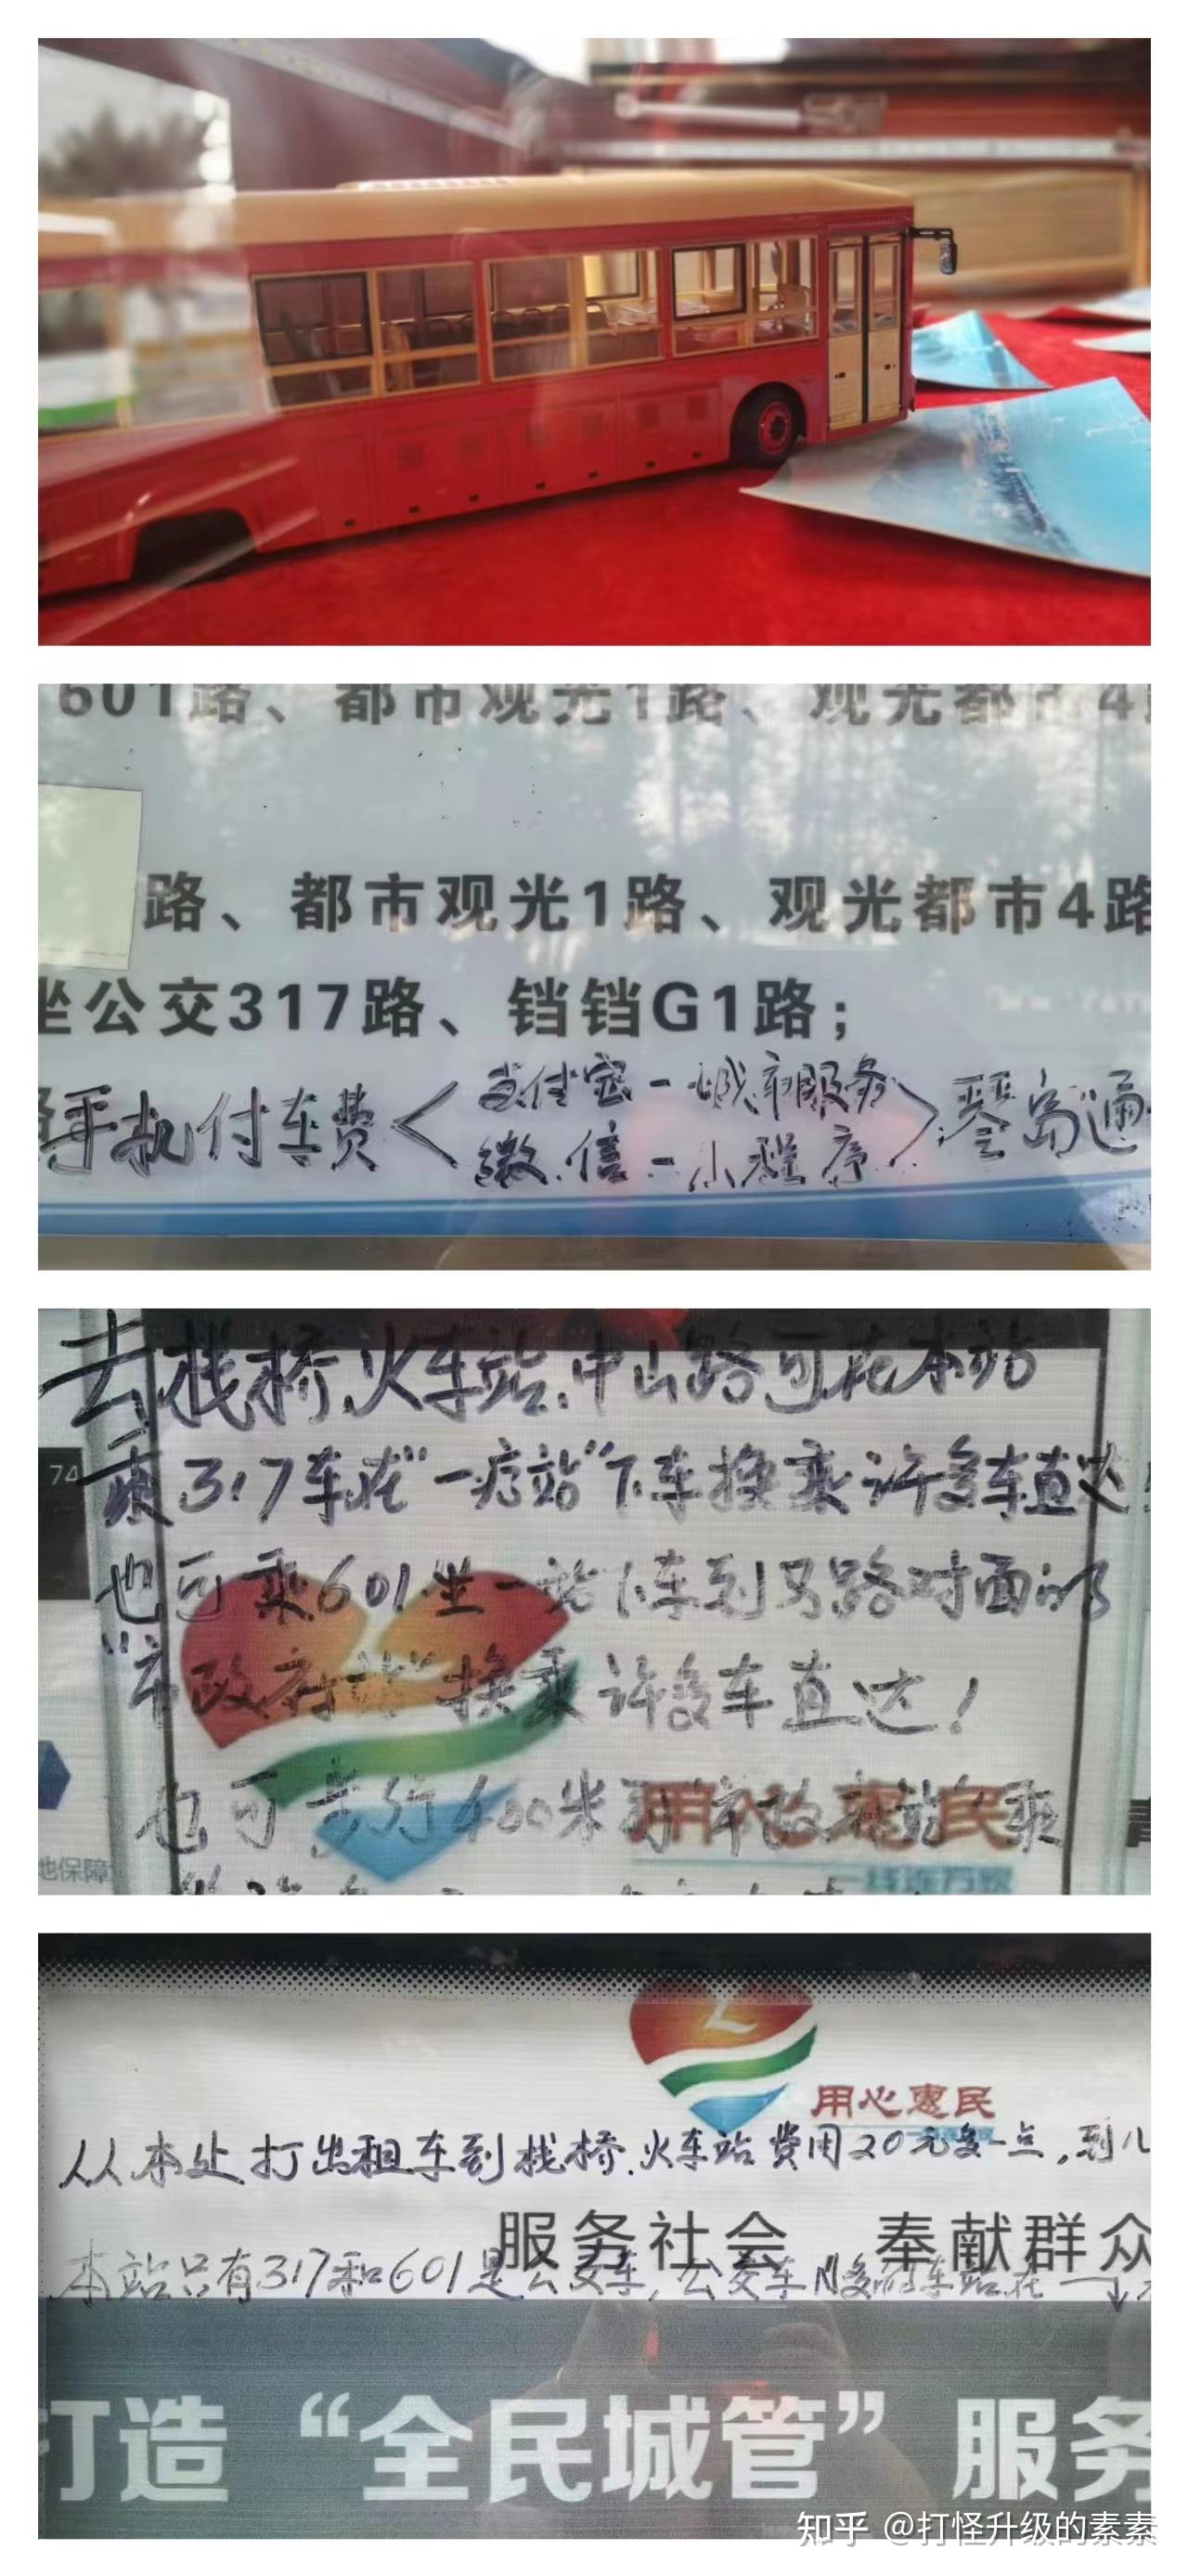 601路、都市观光1路、观光都市4路
路、都市观光1路、观光都市4路
坐公交317路、铛铛G1路；
手机付车费<支付宝-城市服务
微信-小程序>琴岛通
去栈桥、火车站、中山路可在本站
乘317车在“一疗站”下车换乘许多车直达
74
也可乘601坐一站下车到马路对面的
“市政府站”换乘许多车直达！
也可步行400米到市政府站乘
用心惠民
地保障
用心惠民
从本处打出租车到栈桥、火车站费用20元多一点，到
服务社会 奉献群众
本站只有317和601是公交车，公交车
打造“全民城管”服务
知乎 @打怪升级的素素